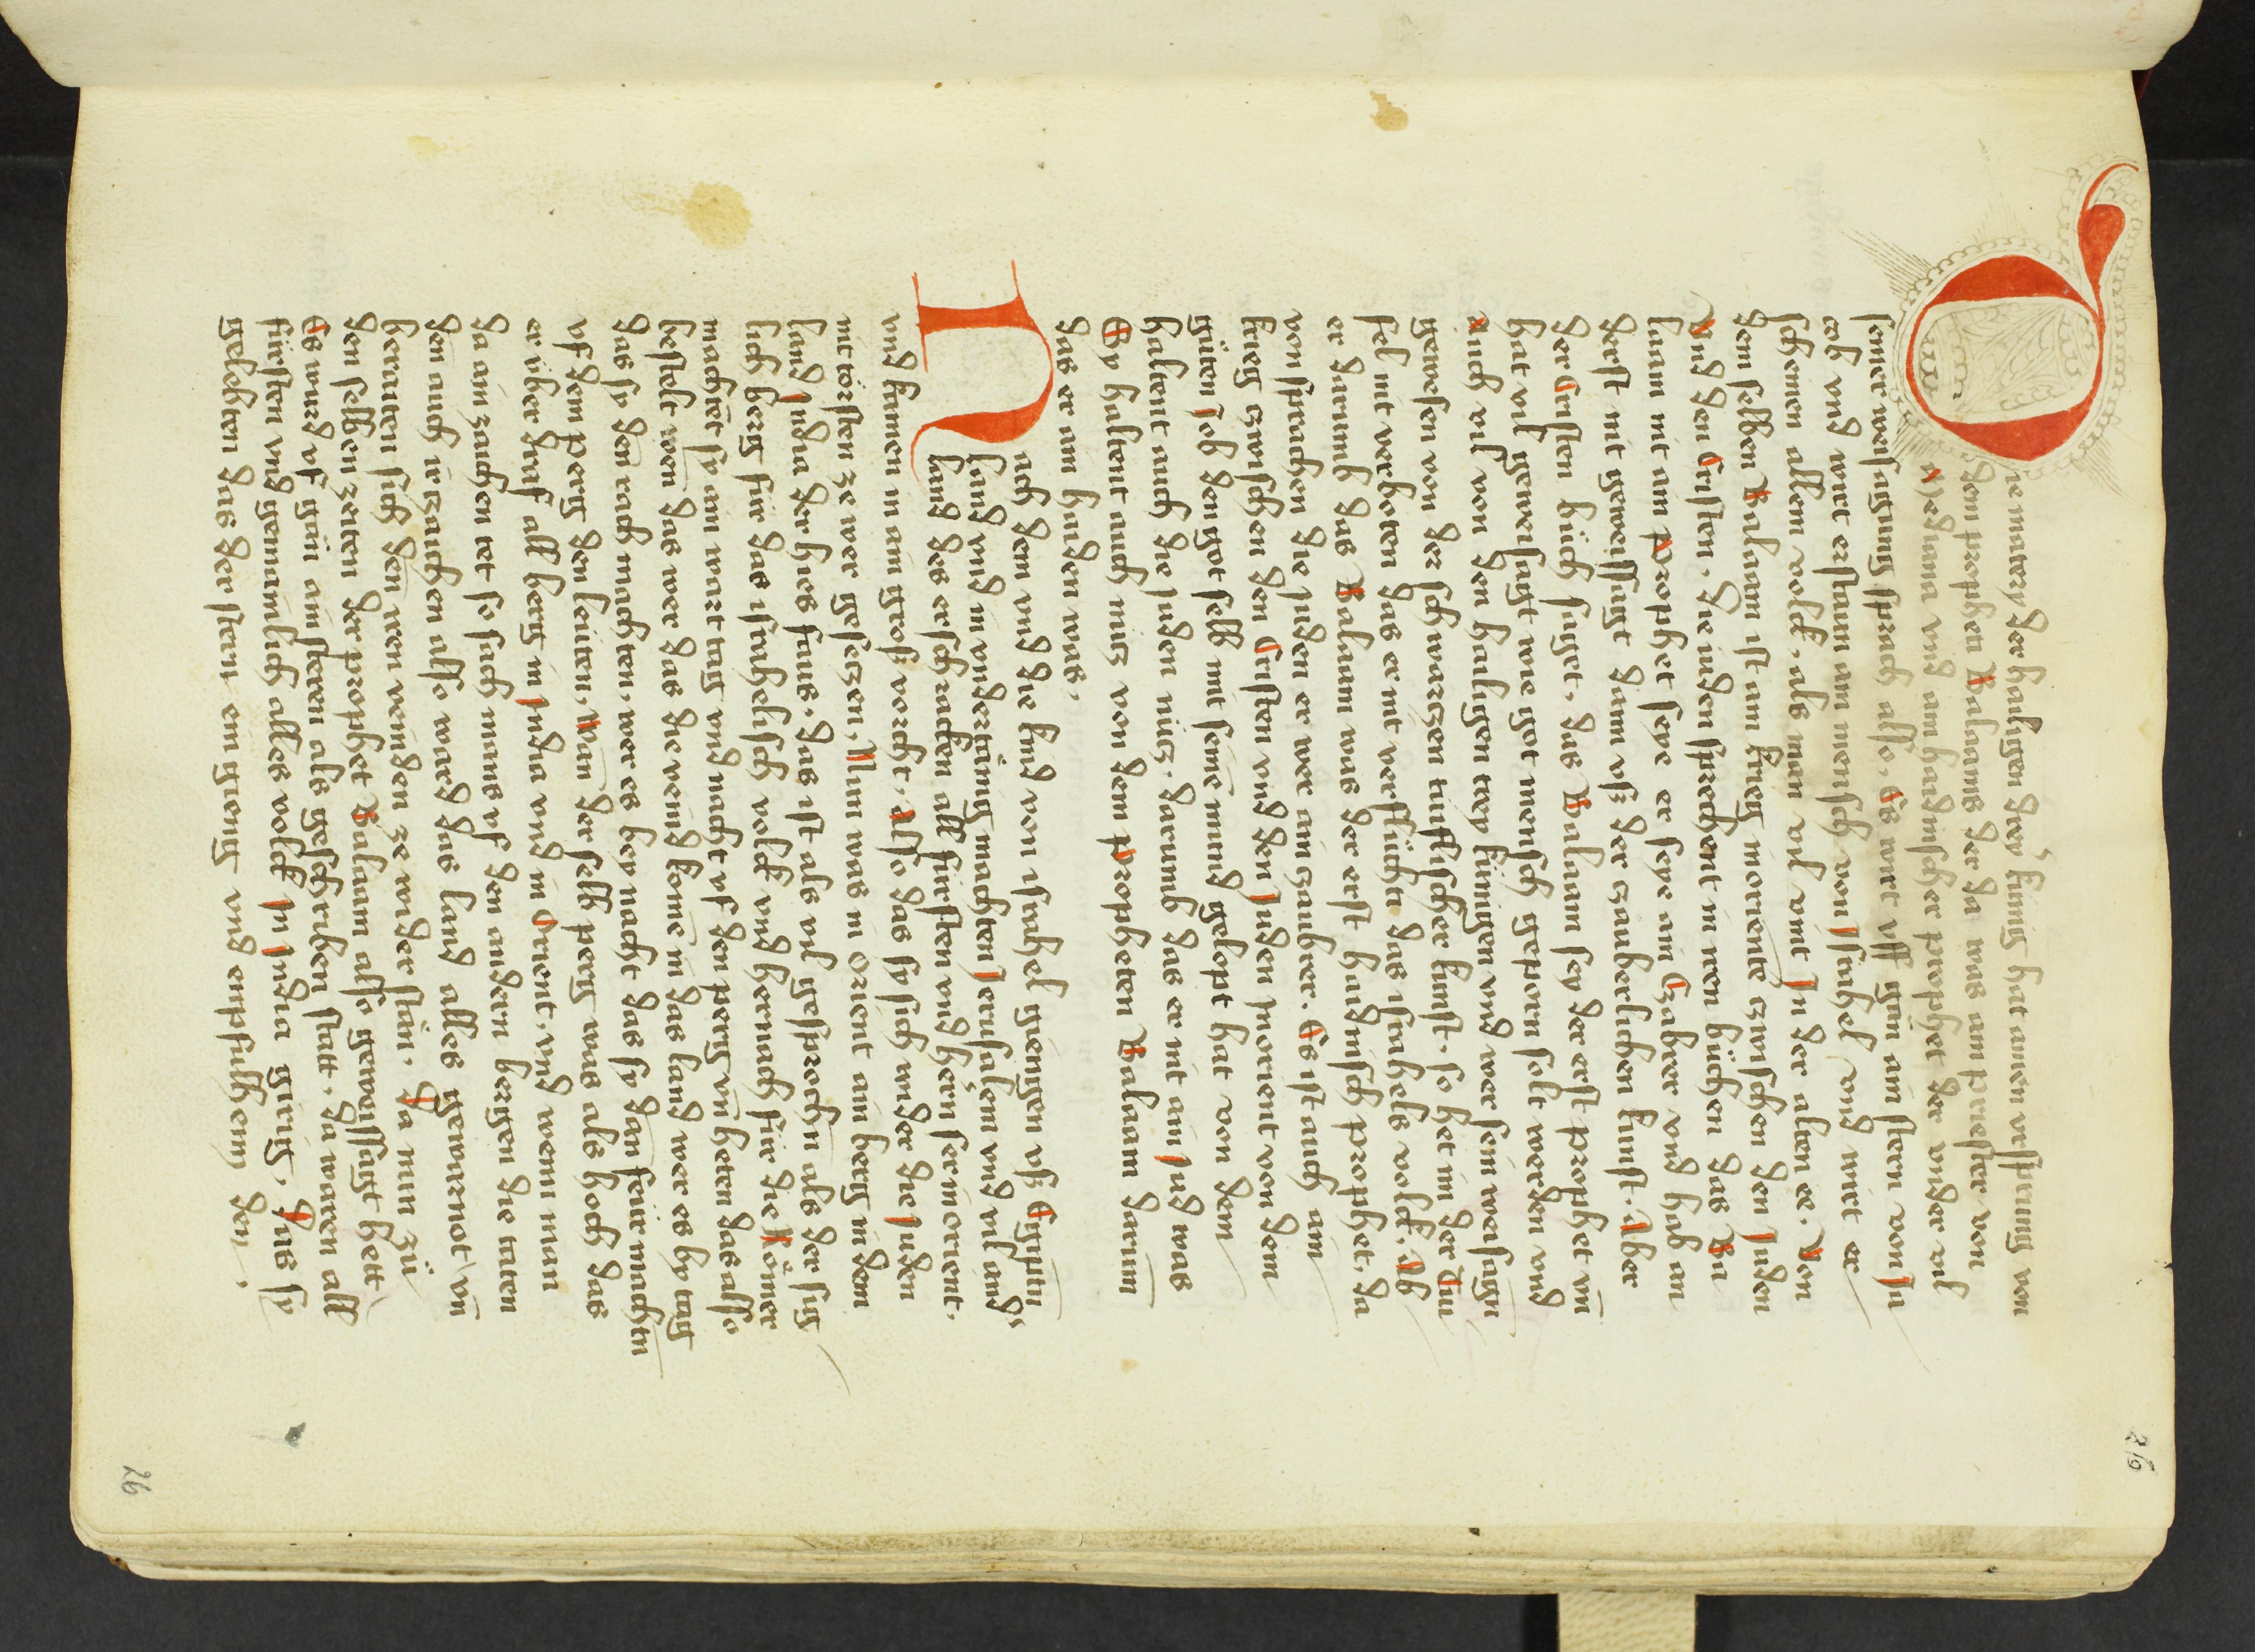 216
Die matery der hailigen dry kunig hat ainen vrsprung von
dem propheten Balaams der da was ain priester von
Mediana vnd ain haidinscher prophet der vnder vil
seiner weissagung sprach also, Es wirt vff gan ain stern von Ja
cob vnd wirt erstaun ain mensch von Jsrahel vnd wirt er
schemen allem volck, als man vil vint Jn der alten ee, Von
dem selben Balaam ist ain krieg in oriente zwischen den Juden
Vnd den Cristen, Die iuden sprechent in iren büchen das Ba
laam nit ain prophet seye er seye ain Zabrer vnd hab an
derst nit geweissagt dann vsz der zauberlichen kunst, Aber
der Cristen büch saget, das Balaam sey der erst prophet vn̄
hat vil geweissagt wie got mensch geporn solt werden vnd
Auch vil von den hailigen trey künigen vnd wer sein weissagn
gewesen von der schwarzen tuflischer kunst, so het im der Tiu
fel nit verboten das er nit verflüchti das israhels volck, Ob
er darumb das Balaam was der erst haidinsch prophet, Da
von sprachen die iuden er wer ain zaubrer, Es ist auch ain
krieg zwischen den Cristen vnd den Juden in orient von dem
güten Job den got selb mit seinē mund gelopt hat von dem
haltent auch die iuden nütz, darumb das er nit ain Jud was
Sy haltent auch nütz von dem propheten Balaam darum
das er ain haiden was,
Nach dem vnd die kind von israhel giengen vsz Egiptn
land vnd in vndertänig machten Jerusalem vnd vil and,
land des erschracken all fürsten vnd herrn ser in orient,
vnd kamen in ain grosz vorcht, Also das sy sich wider die Juden
nit törsten ze wer gesetzen, Nun was in orient ain berg in dem
land India der hies faus, das ist als vil gesprochn als der sig
lich berg für das israhelisch volck vnd hernach für die Römer
machtēt sy ain wart tag vnd nacht vf den perg vn̄ heten das also
bestelt wen das wer das die veind komē in das land wer es by tag
das sy den rach machten, wer es bey nacht das sy dan feür machtn
vf dem perg den leüten, Wan der selb perg was als hoch das
er über draf all berg in Jndia vnd in Orient, vnd wenn man
da ain zaichen tet so sach mans vf den andern bergen die taten
den auch ir zaichen also ward das land alles gewarnot vn̄
beraiten sich den iren veinden ze wider stān, Da nun zü
den selben zeiten der prophet Balaam also geweissagt hett
Es wurd vf gan ain steren als geschriben statt, da waren all
fürsten vnd gemainlich alles volck in Jndia girig, Das sy
gelebten das der stern an gieng vnd empfulhen den,
26